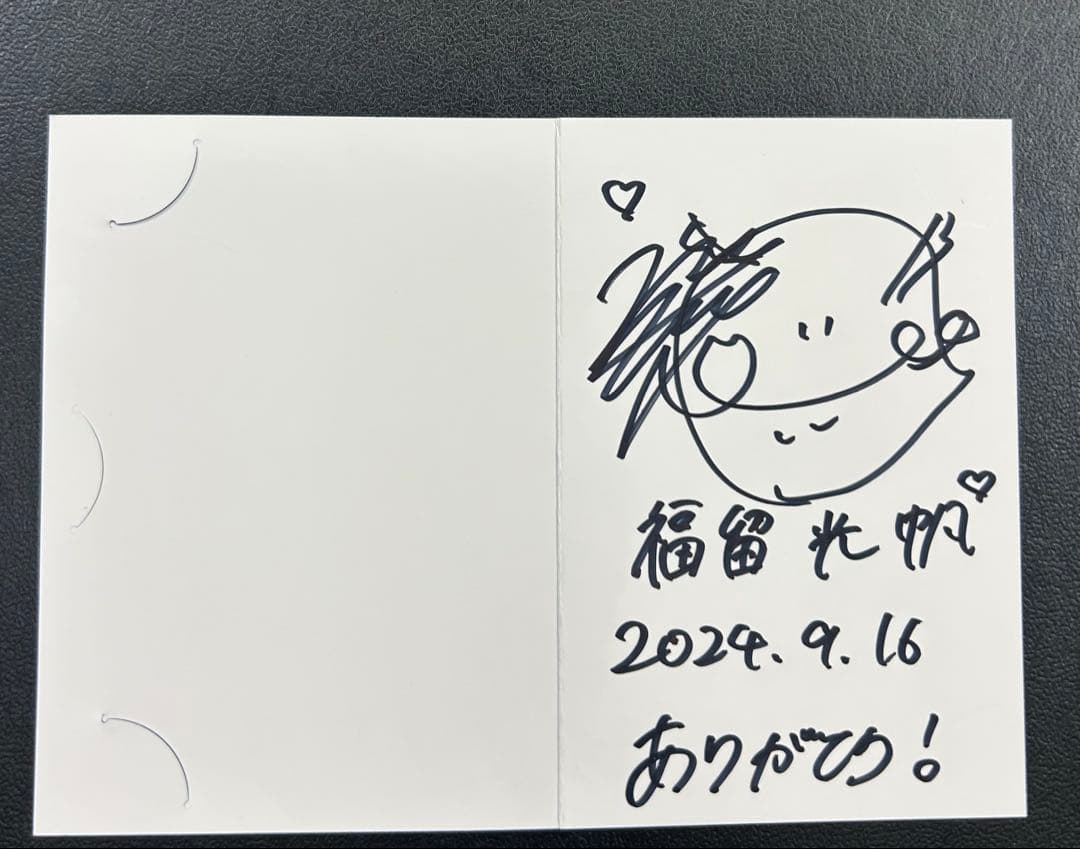 福留光帆
2024.9.16
ありがとう!